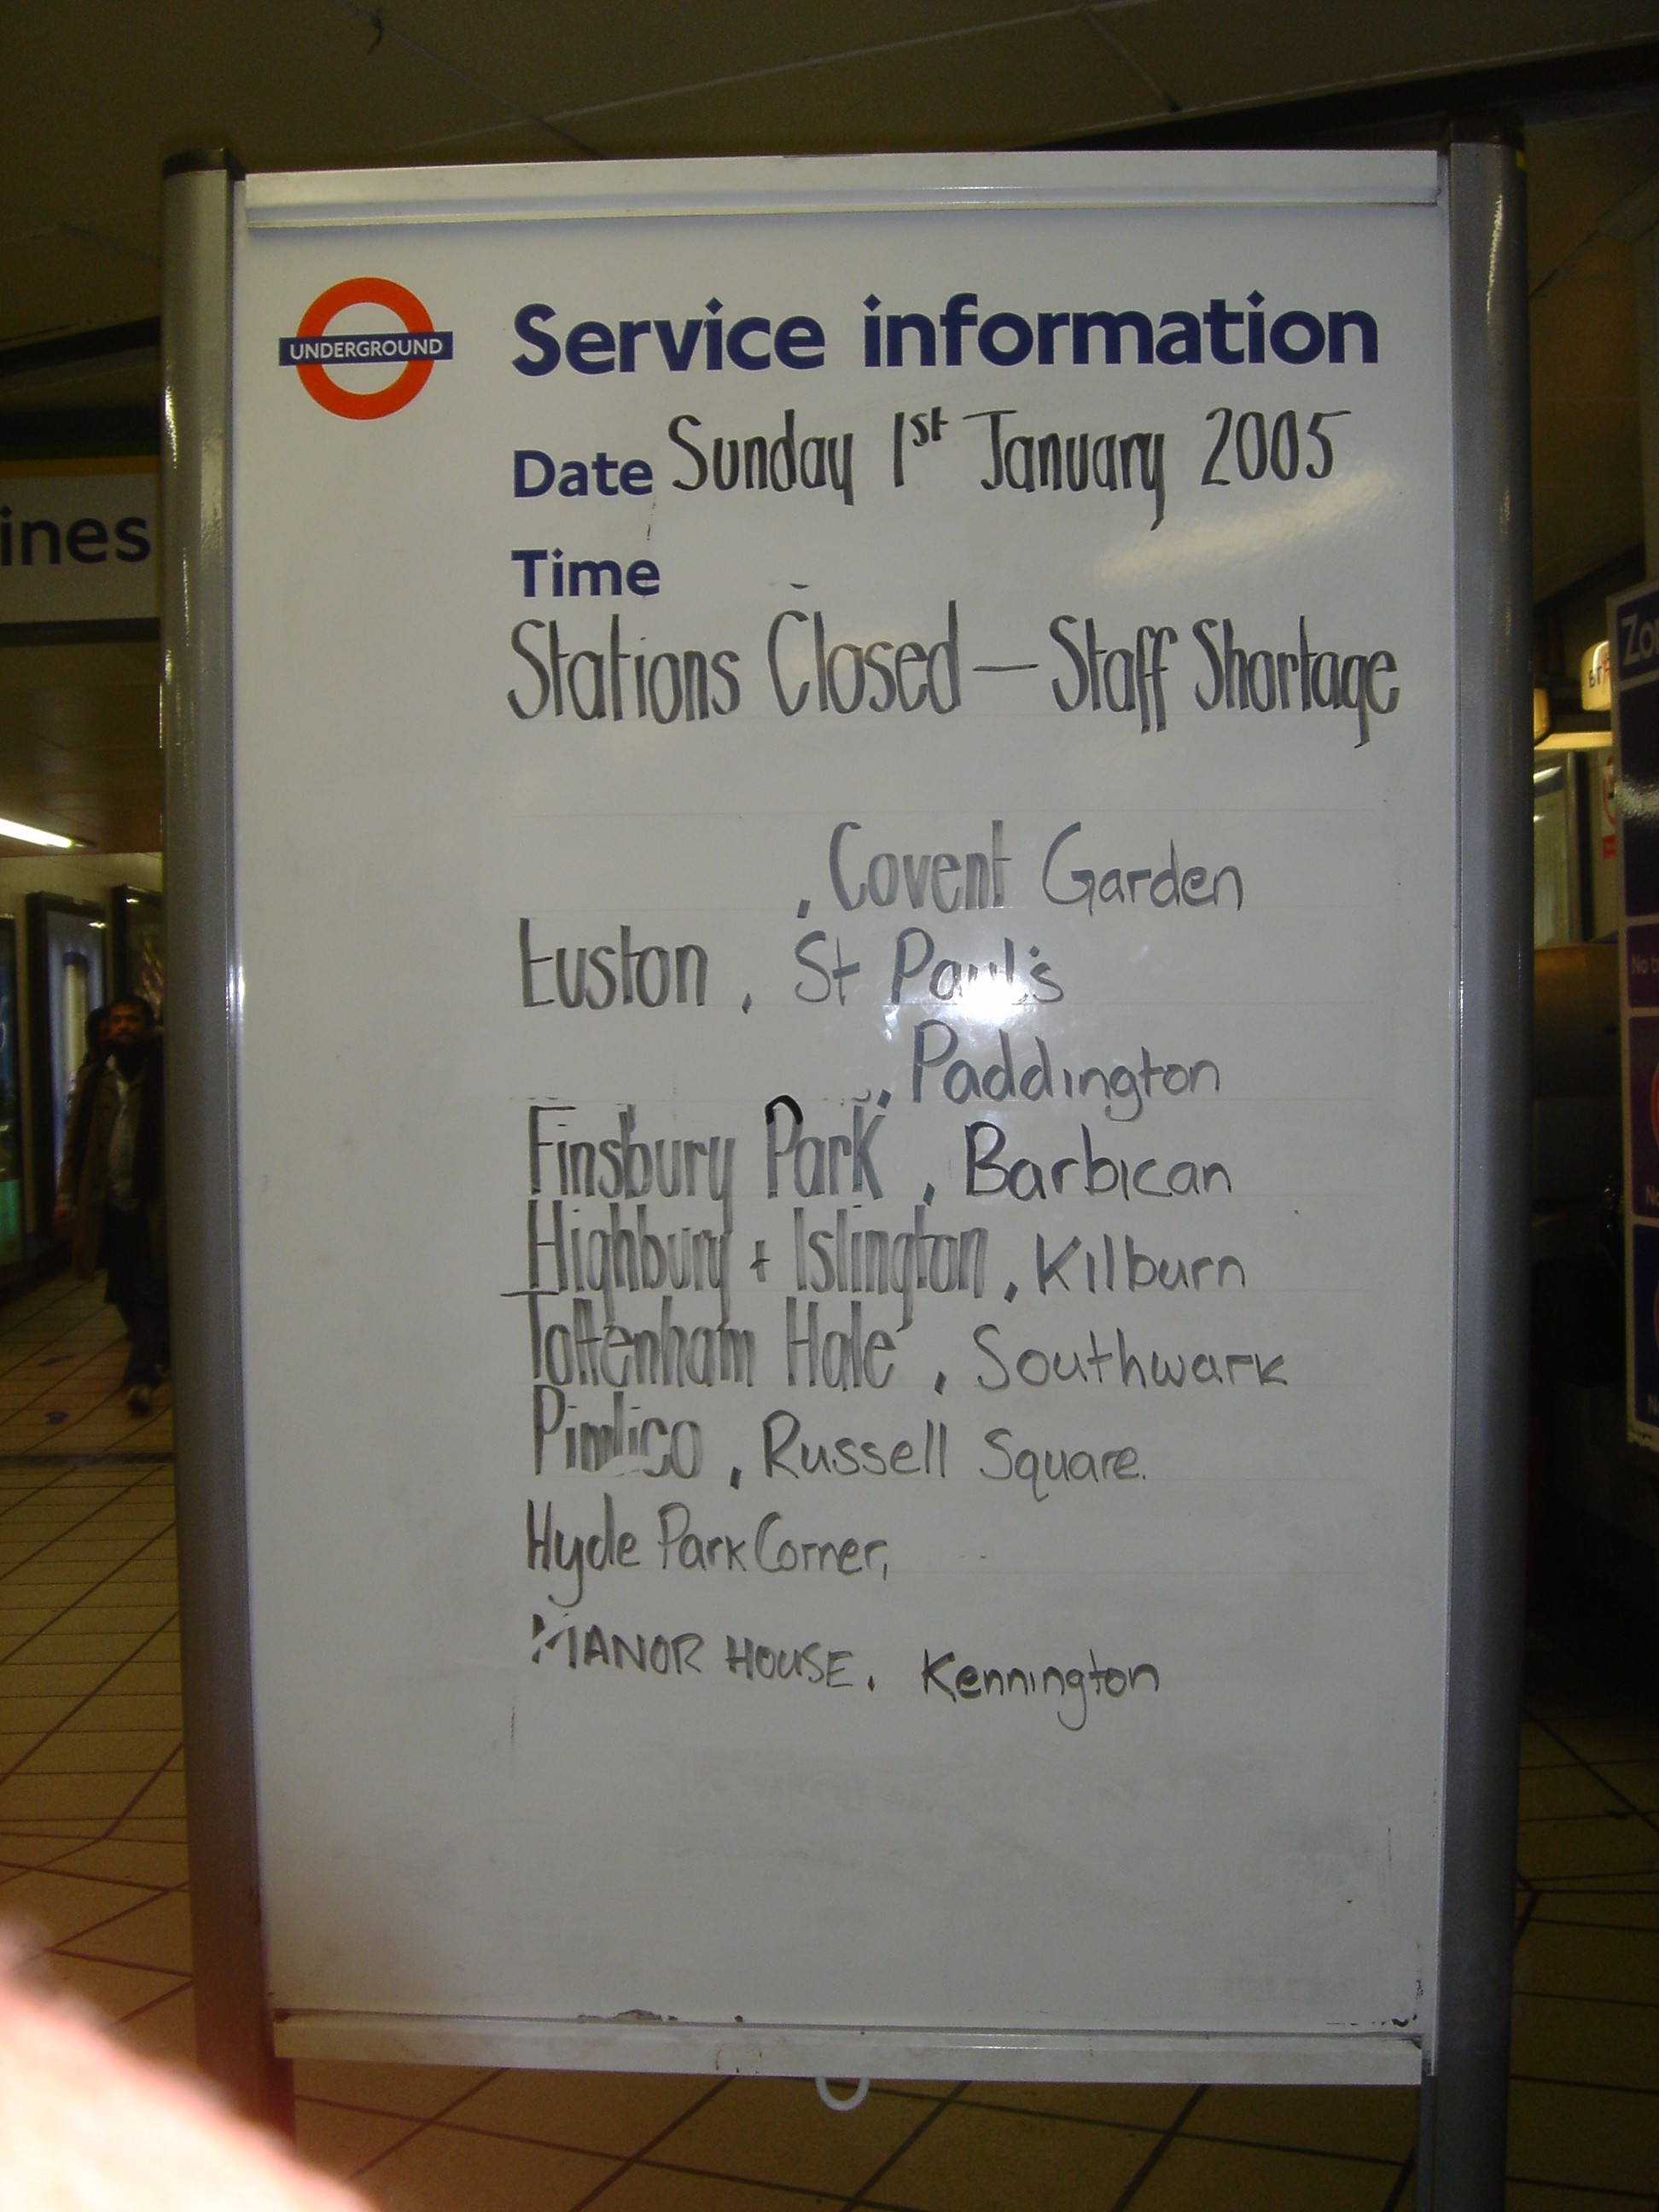 UNDERGROUND
Service information
Date Sunday 1st January 2005
Time
Stations Closed — Staff Shortage
, Covent Garden
Euston, St Paul's
, Paddington
Finsbury Park, Barbican
Highbury + Islington, Kilburn
Tottenham Hale, Southwark
Pimlico, Russell Square.
Hyde Park Corner,
MANOR HOUSE. Kennington
ines
Zo
No t